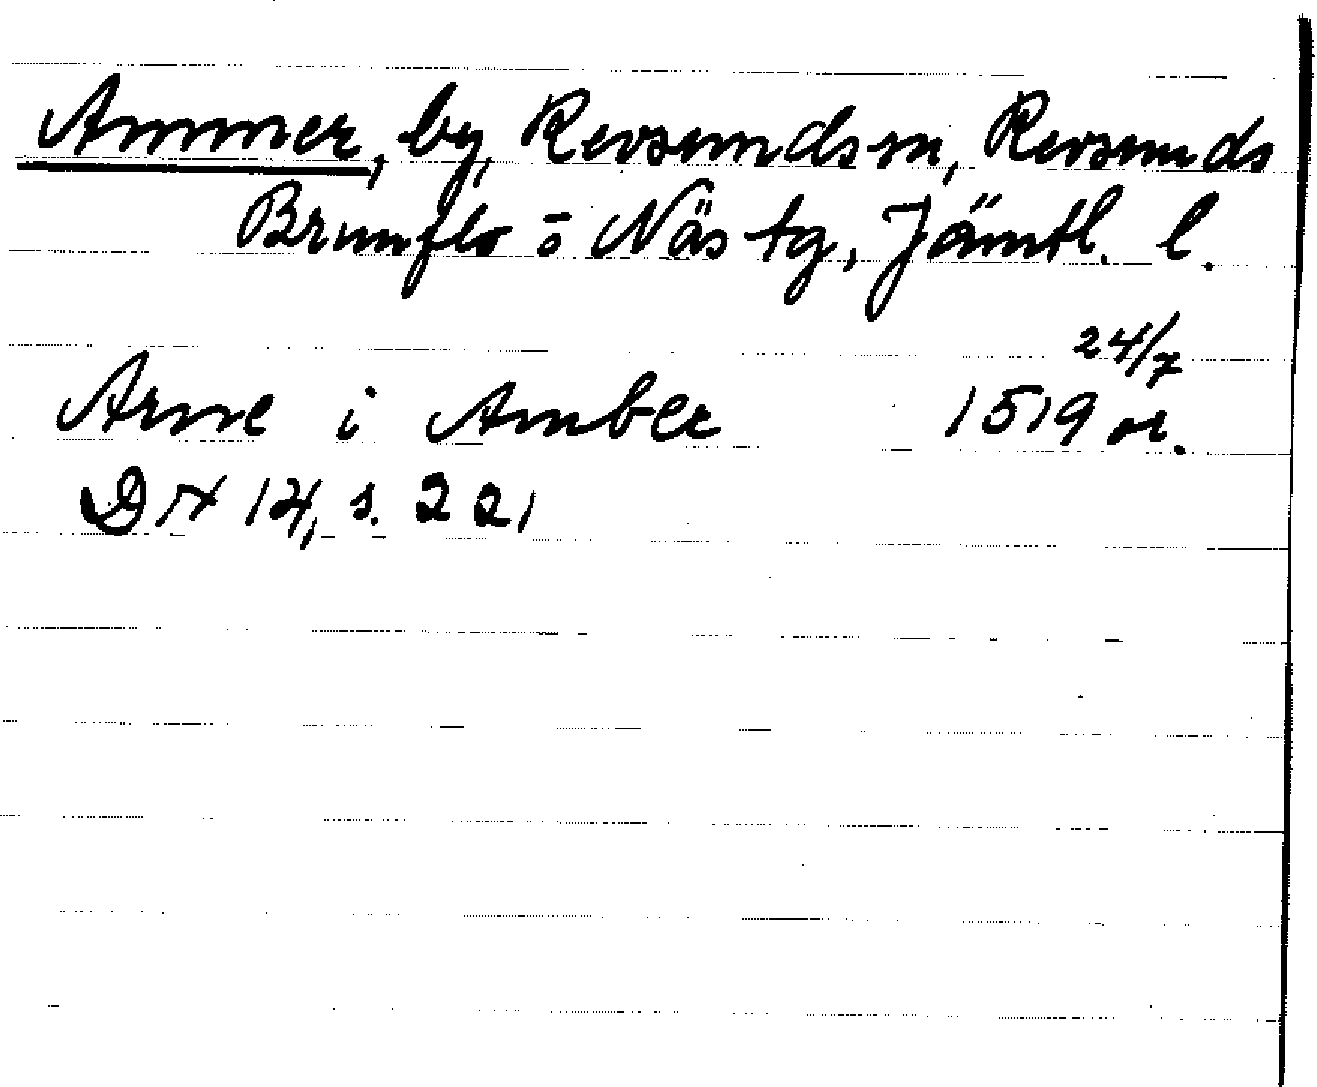 Ammer, by, Revsunds sn, Revsunds
Brunflo o Näs tg, Jämtl. l.
24/7
Arne i Amber 1519 or.
DN 14, s. 221